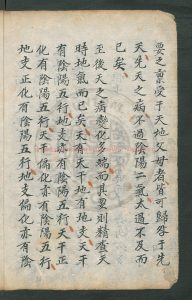 要之稟受于天地父母者皆可歸咎于先
天先天之病不過陰陽二氣太過不及而
已矣
至後天之病變化多端而其要則精查天
時地氣而已矣天有天干地有地支天干
有陰陽五行地支亦有陰陽五行天干正
化有陰陽五行天干偏化亦有陰陽五行
地支正化有陰陽五行地支偏化亦有陰